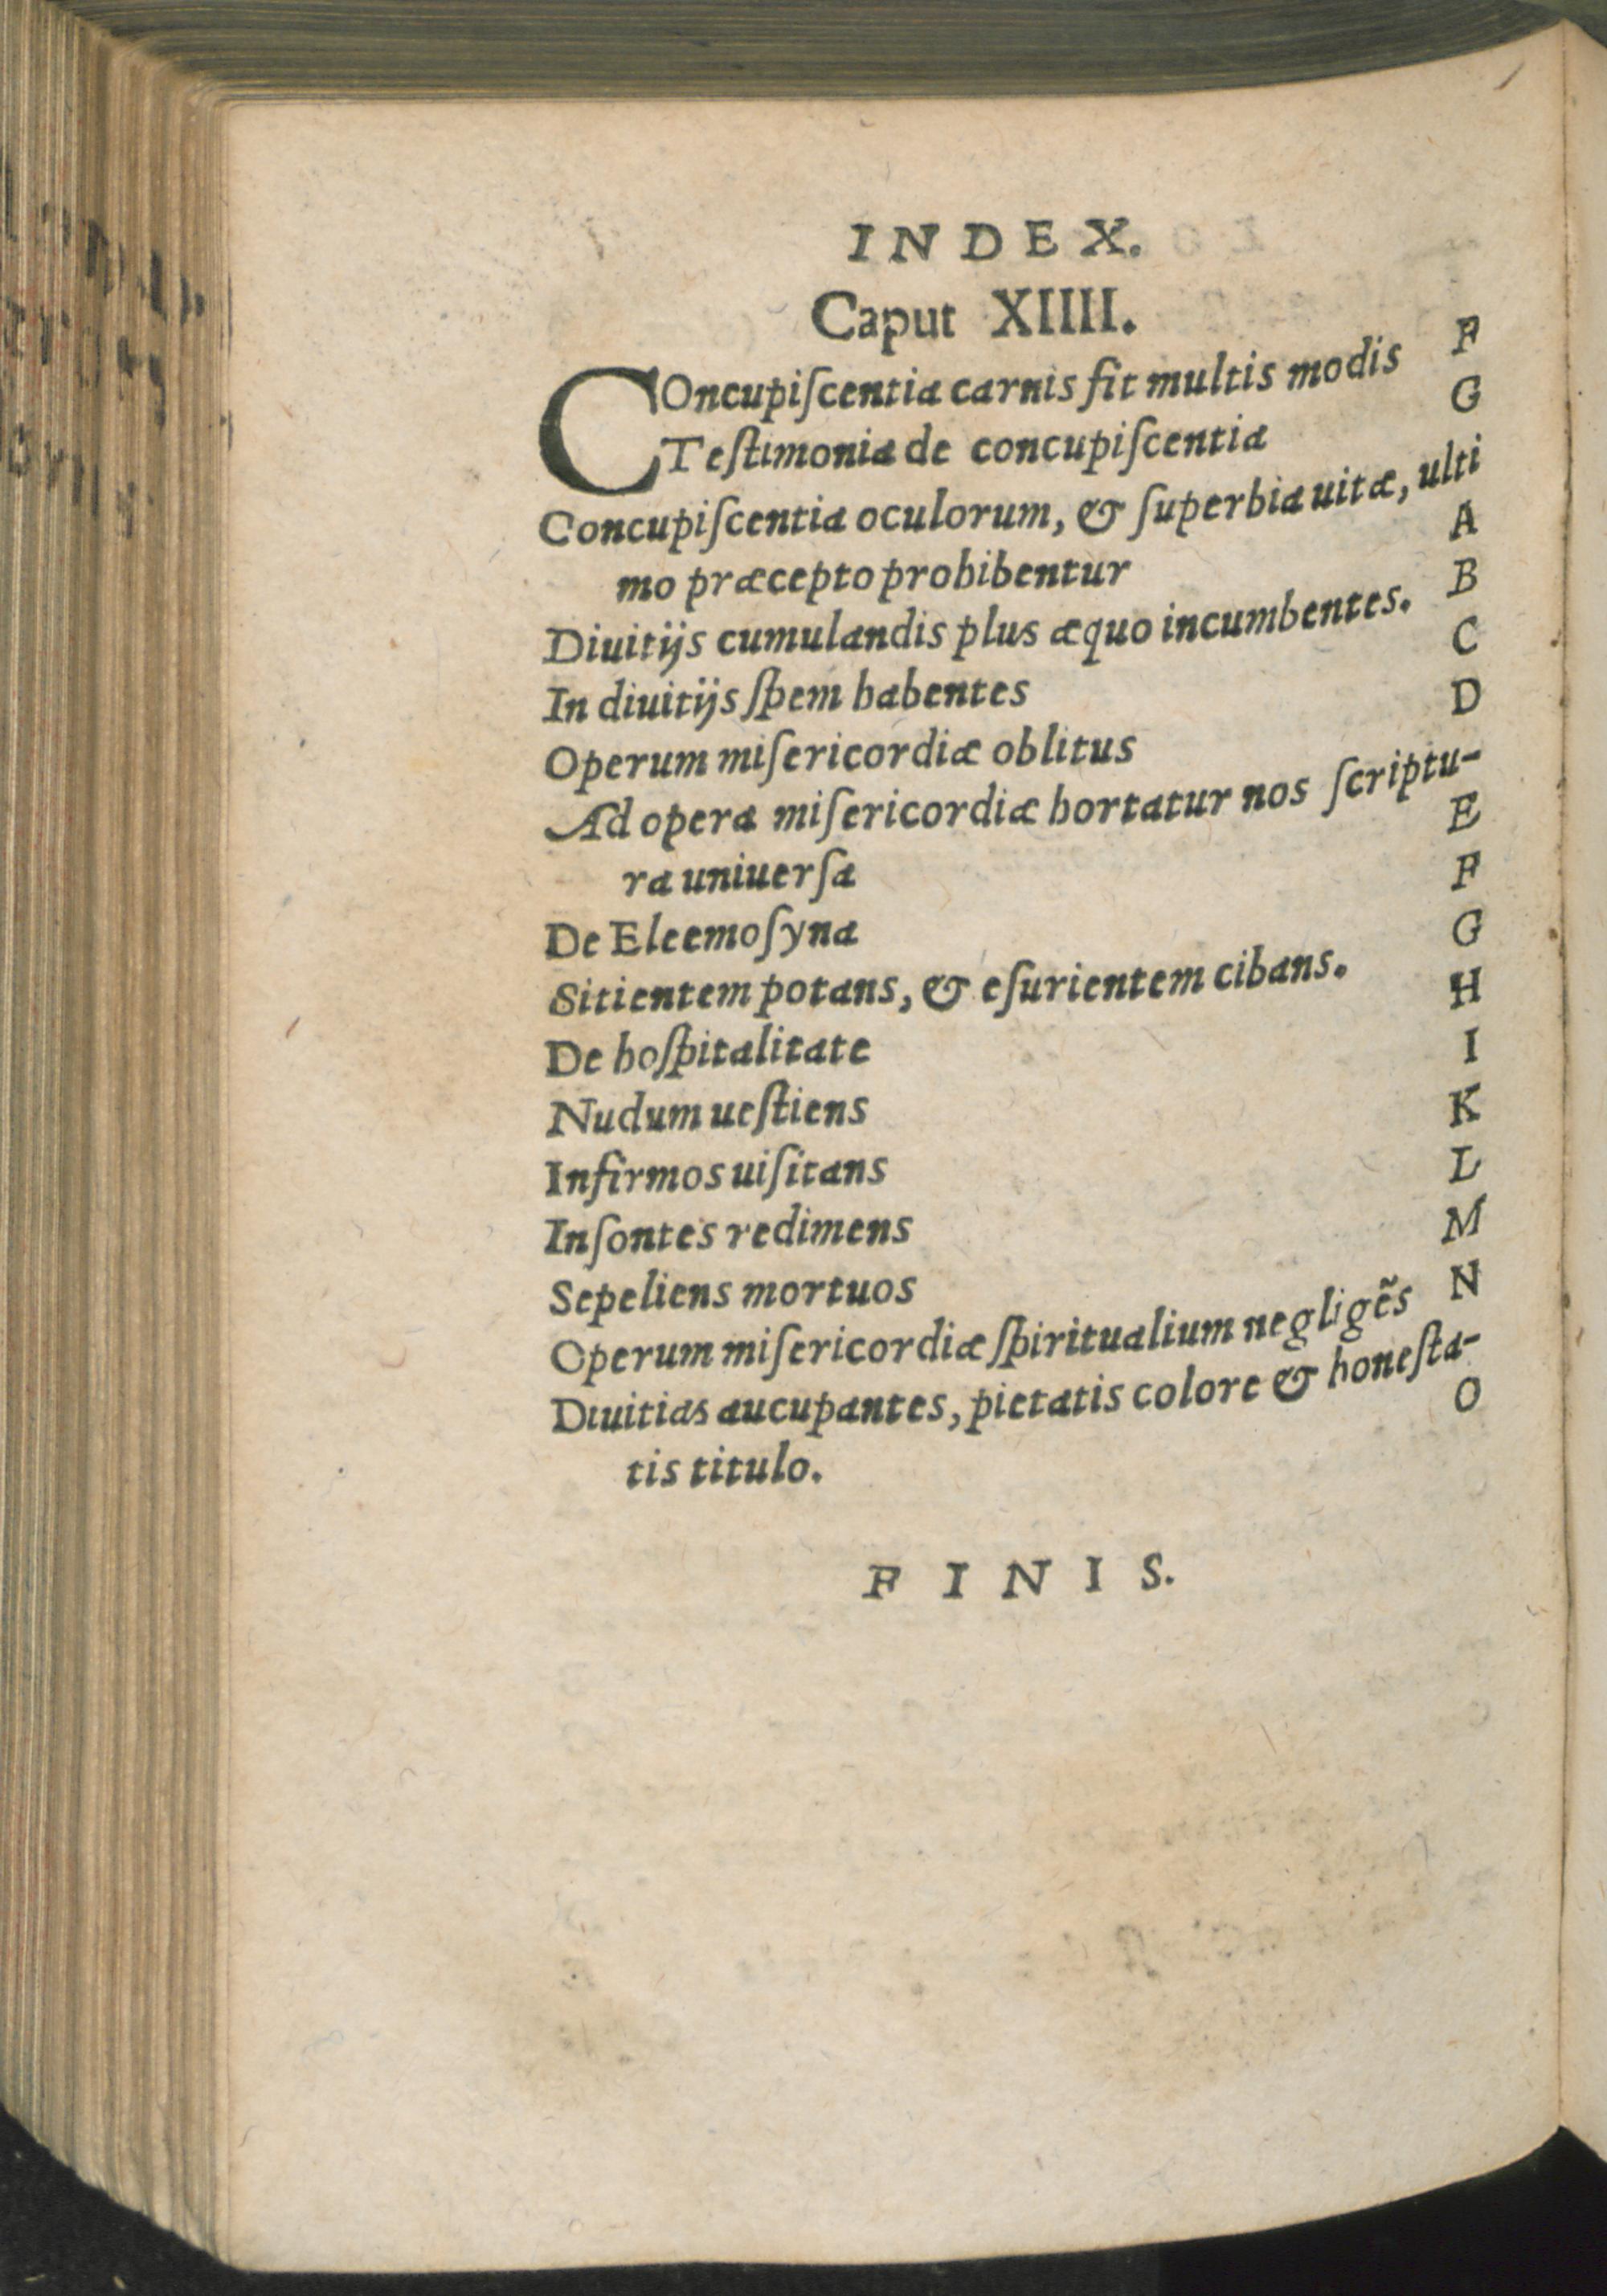 INDEX.
Caput XIIII.
COncupiſcentia carnis fit multis modis F
Teſtimonia de concupiſcentia G
Concupiſcentia oculorum, & ſuperbia uitæ, ulti
mo præcepto prohibentur A
Diuitijs cumulandis plus æquo incumbentes. B
In diuitijs ſpem habentes C
Operum miſericordiæ oblitus D
Ad opera miſericordiæ hortatur nos ſcriptu-
ra uniuerſa E
De Eleemoſyna F
Sitientem potans, & eſurientem cibans. G
De hoſpitalitate H
Nudum ueſtiens I
Infirmos uiſitans K
Inſontes redimens L
Sepeliens mortuos M
Operum miſericordiæ ſpiritualium negligẽs N
Diuitias aucupantes, pietatis colore & honeſta-
tis titulo. O
FINIS.